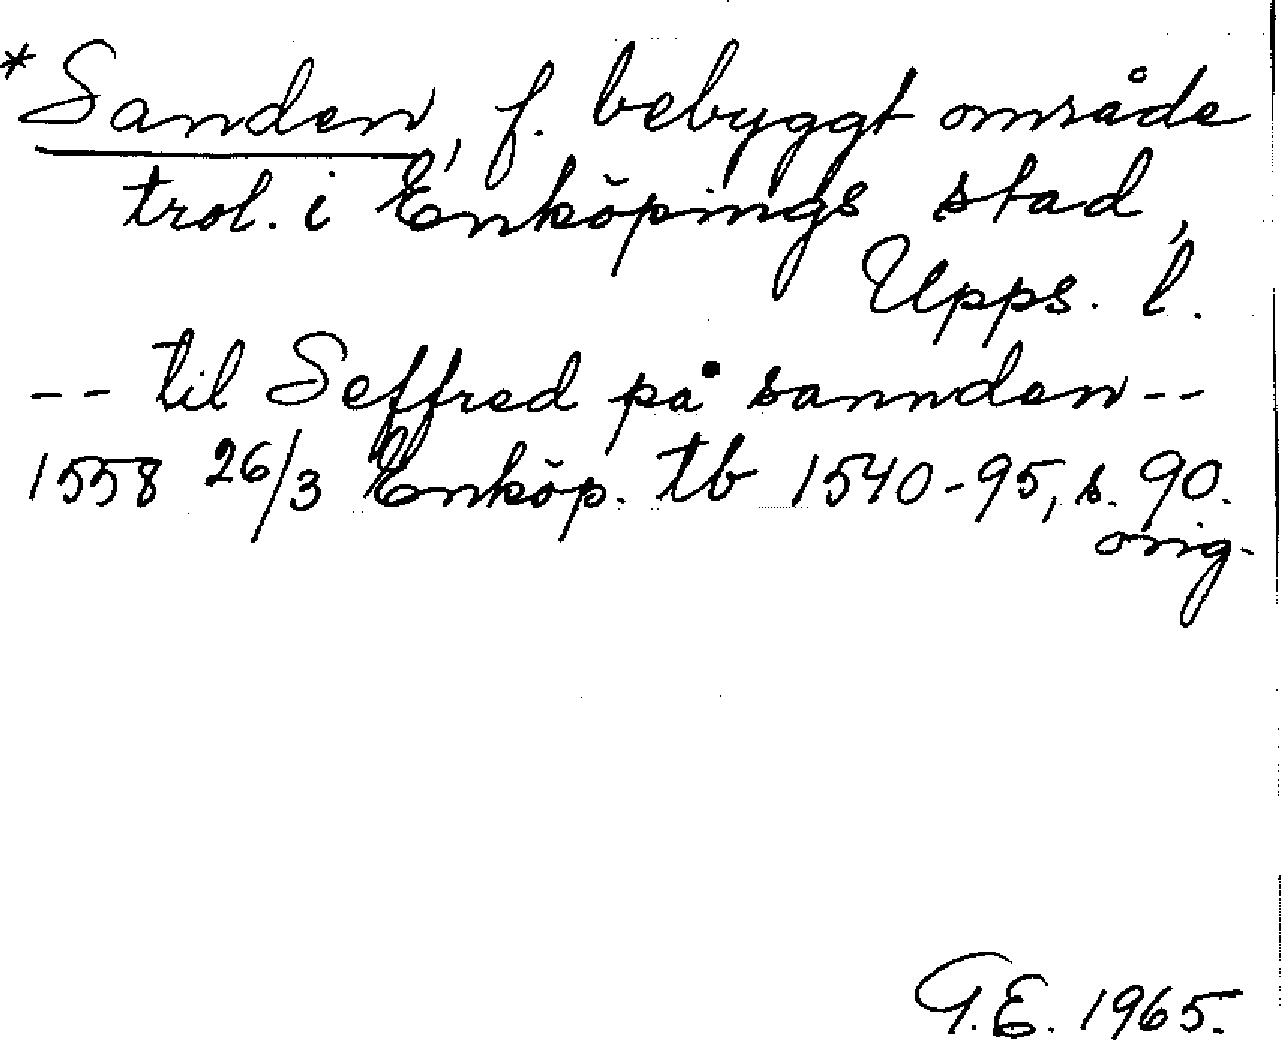 *Sanden, f. bebyggt område
trol. i Enköpings stad,
Upps. l.
-- til Seffred på sannden--
1558 26/3 Enköp. tb 1540-95, s. 90.
orig.
G.E. 1965.